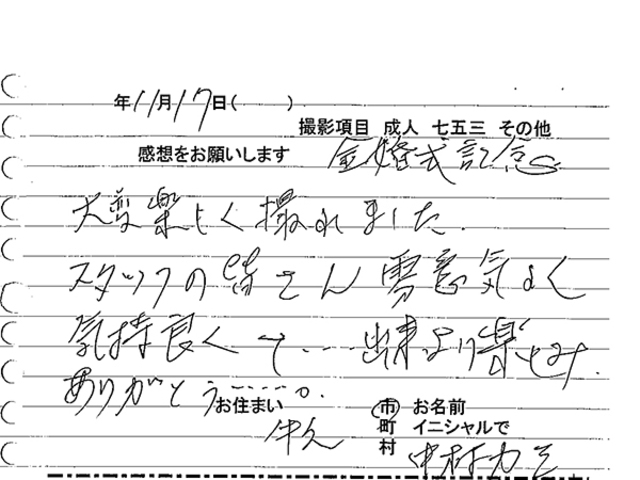 年11月17日( )
撮影項目 成人 七五三 その他
感想をお願いします 金婚式記念
大変楽しく撮れました.
スタッフの皆さん雰意気よく
気持良くて・・・・出来より楽しみ.
ありがとう・・・・・。
お住まい 市 お名前
町 イニシャルで
牛久 村 中村